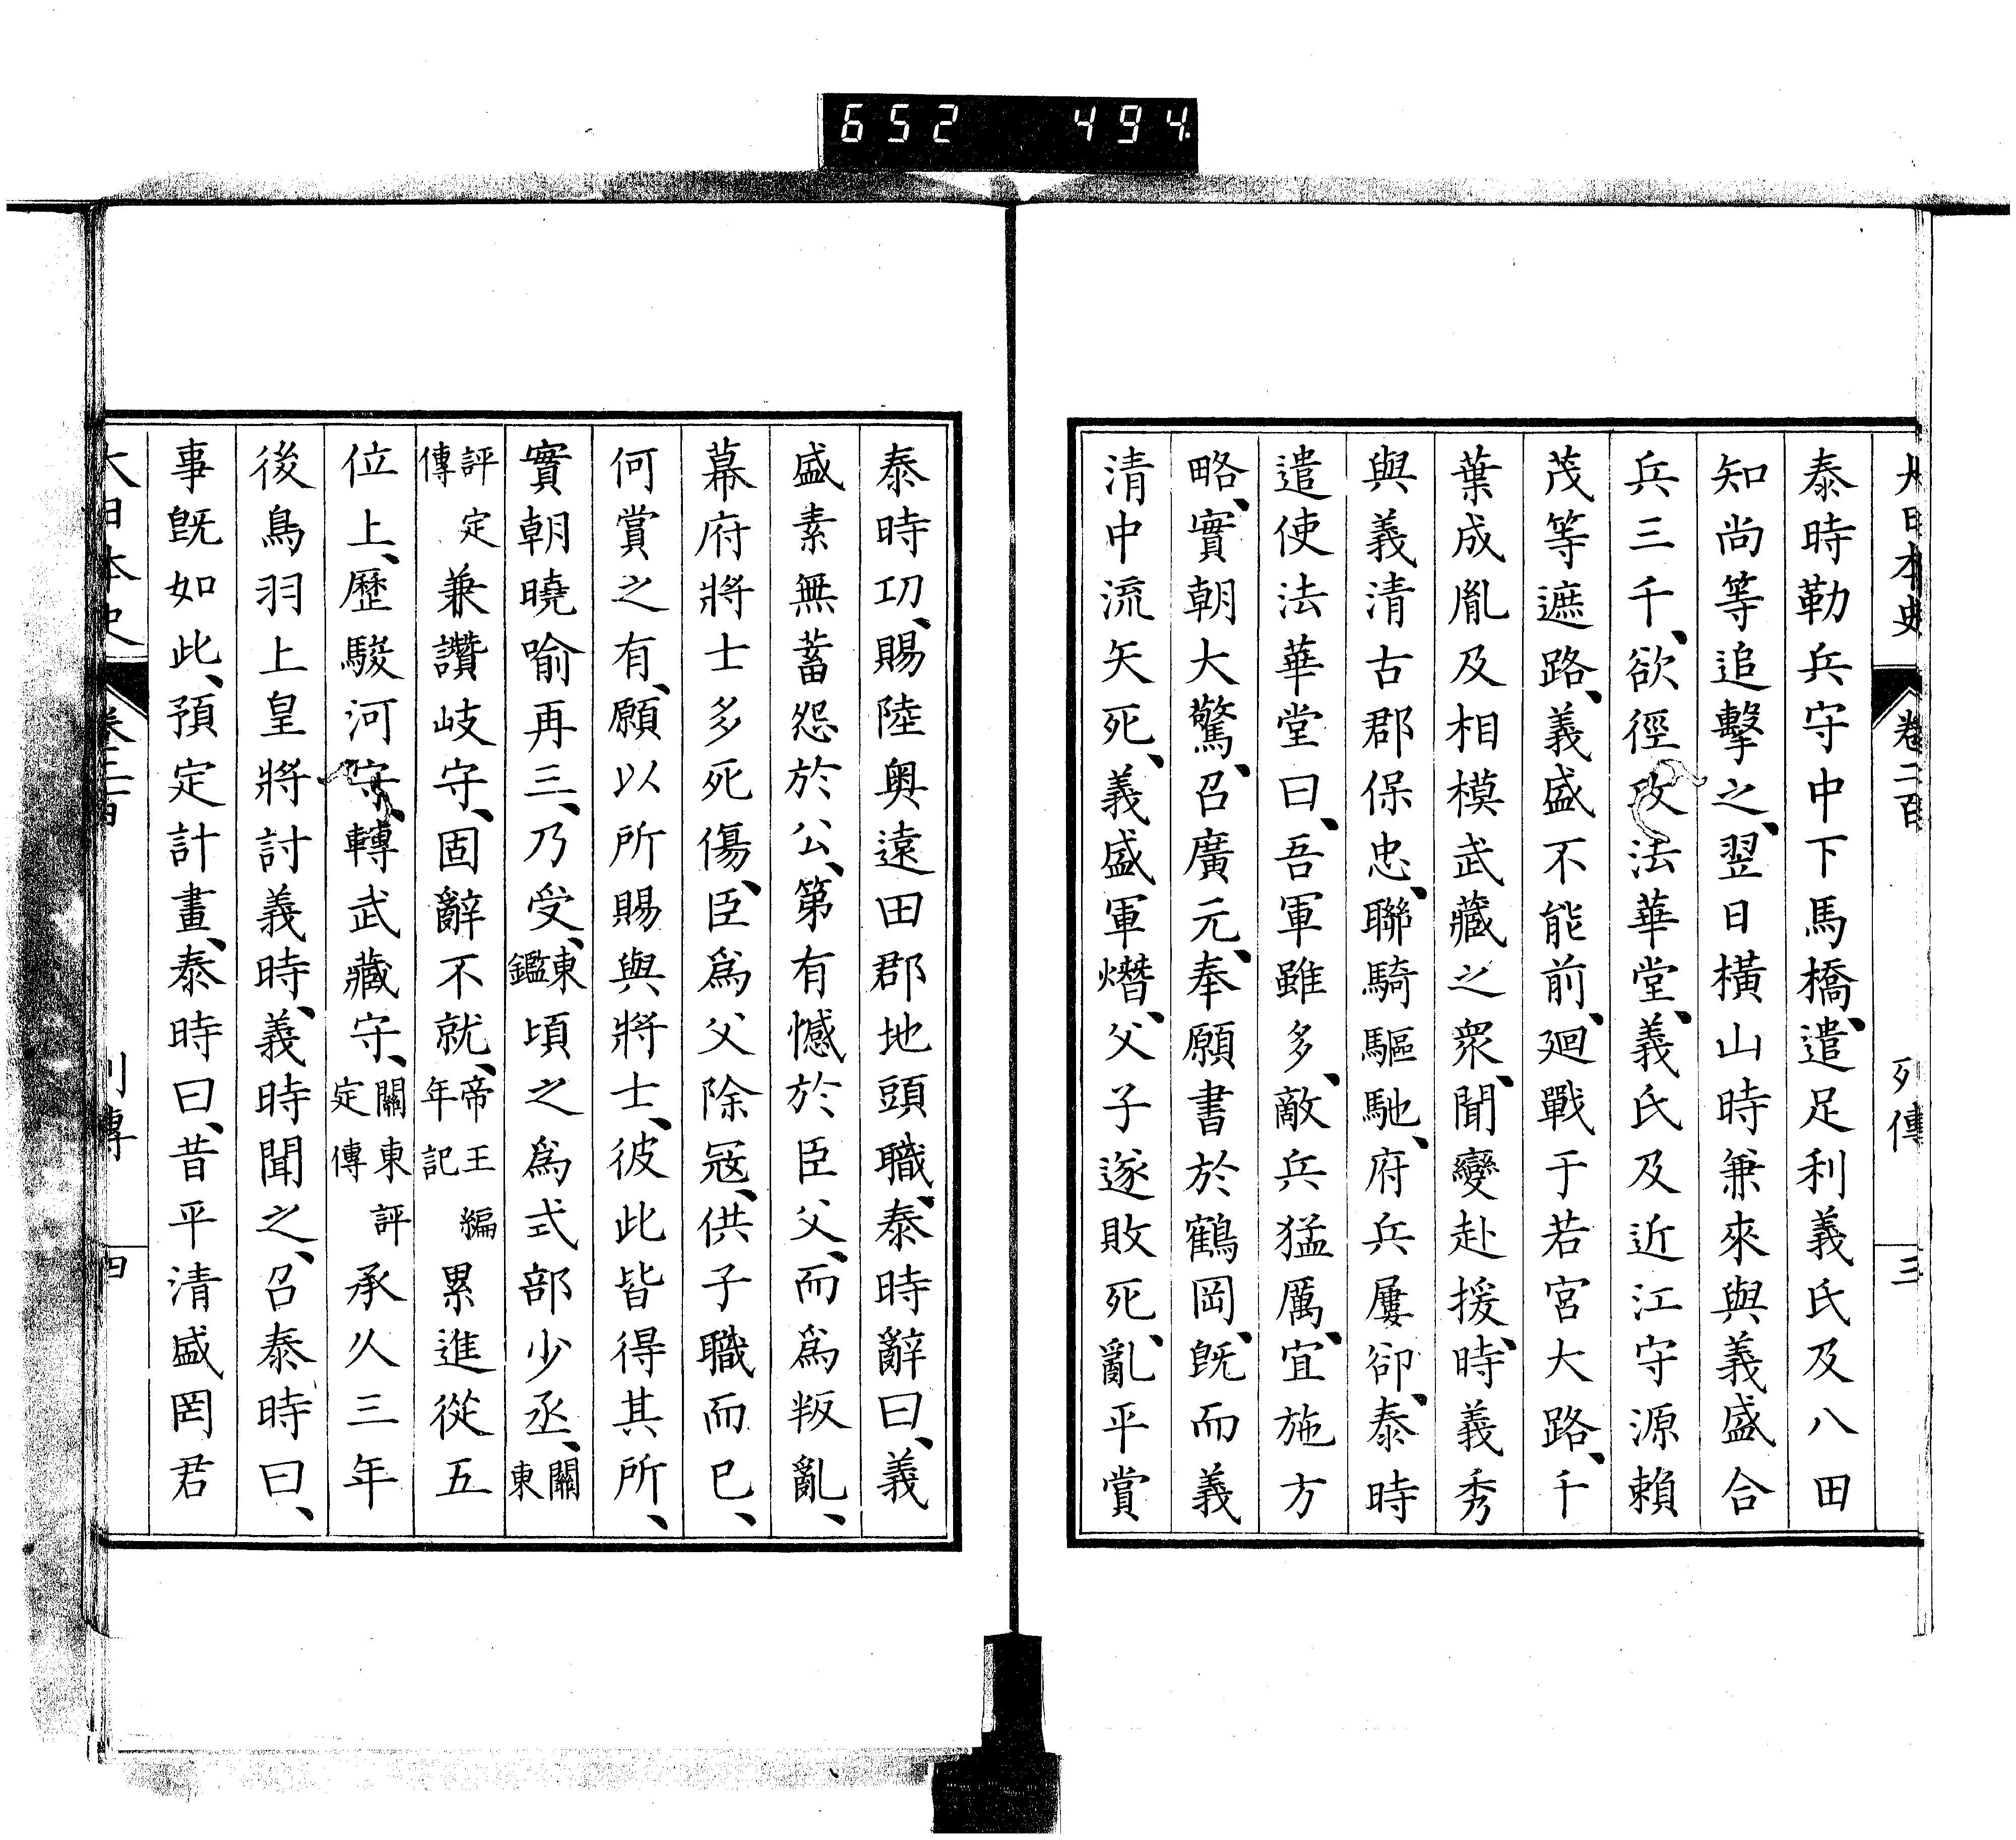 652 494
大日本史 卷二百 列傳 三
泰時勒兵守中下馬橋、遣足利義氏及八田
知尚等追擊之、翌日橫山時兼來與義盛合
兵三千、欲徑攻法華堂、義氏及近江守源賴
茂等遮路、義盛不能前、廻戰于若宮大路、千
葉成胤及相模武藏之衆、聞變赴援、時義秀
與義清古郡保忠、聯騎驅馳、府兵屢卻、泰時
遣使法華堂曰、吾軍雖多、敵兵猛厲、宜施方
略、實朝大驚、召廣元、奉願書於鶴岡、既而義
清中流矢死、義盛軍熸、父子遂敗死、亂平賞
泰時功、賜陸奧遠田郡地頭職、泰時辭曰、義
盛素無蓄怨於公、第有憾於臣父、而爲叛亂、
幕府將士多死傷、臣爲父除寇、供子職而已、
何賞之有、願以所賜與將士、彼此皆得其所、
實朝曉喻再三、乃受、東鑑頃之爲式部少丞、關東
評定傳兼讚岐守、固辭不就、帝王編年記累進從五
位上、歷駿河守、轉武藏守、關東評定傳承久三年
後鳥羽上皇將討義時、義時聞之、召泰時曰、
事旣如此、預定計畫、泰時曰、昔平清盛罔君
大日本史 卷二百 列傳 四